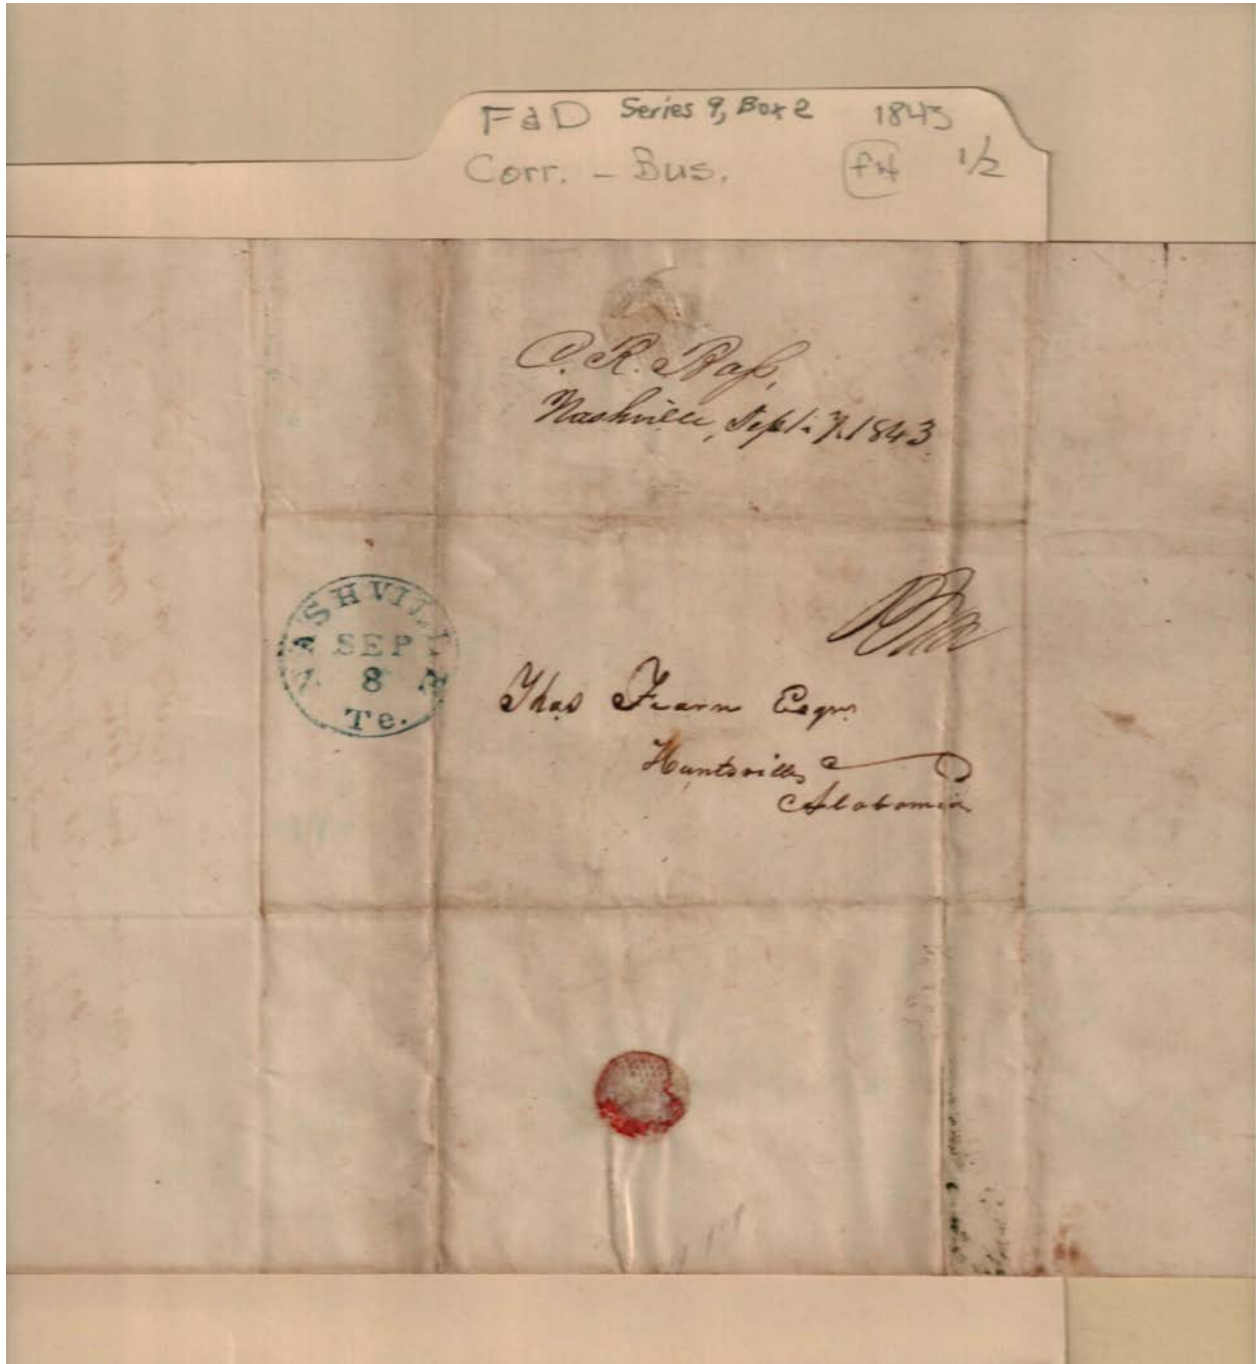 F&D Series 9, Box 2 1843
Corr. - Bus. 1/2
Nashville, Sept. 7. 1843
NASHVILLE
SEP
8
Te.
Thos Fearn Esqr
Huntsville
Alabama